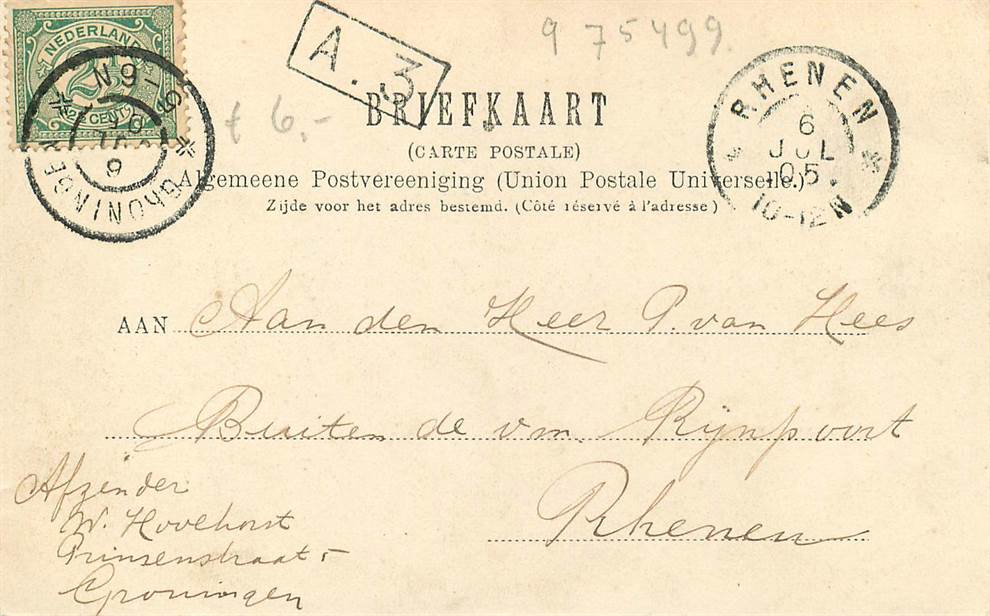 NEDERLAND
2½
2½ CENT
GRONINGEN
6 JUL
9 N
A. 3
9 75499
f 6,-
BRIEFKAART
(CARTE POSTALE)
Algemeene Postvereeniging (Union Postale Universelle.)
Zijde voor het adres bestemd. (Côté réservé à l'adresse)
RHENEN
6
JUL
05.
10-12N
AAN Aan den Heer P. van Hees
Buiten de vm. Rijnpoort
Rhenen
Afzender
W. Hovehorst
Prinsenstraat
Groningen